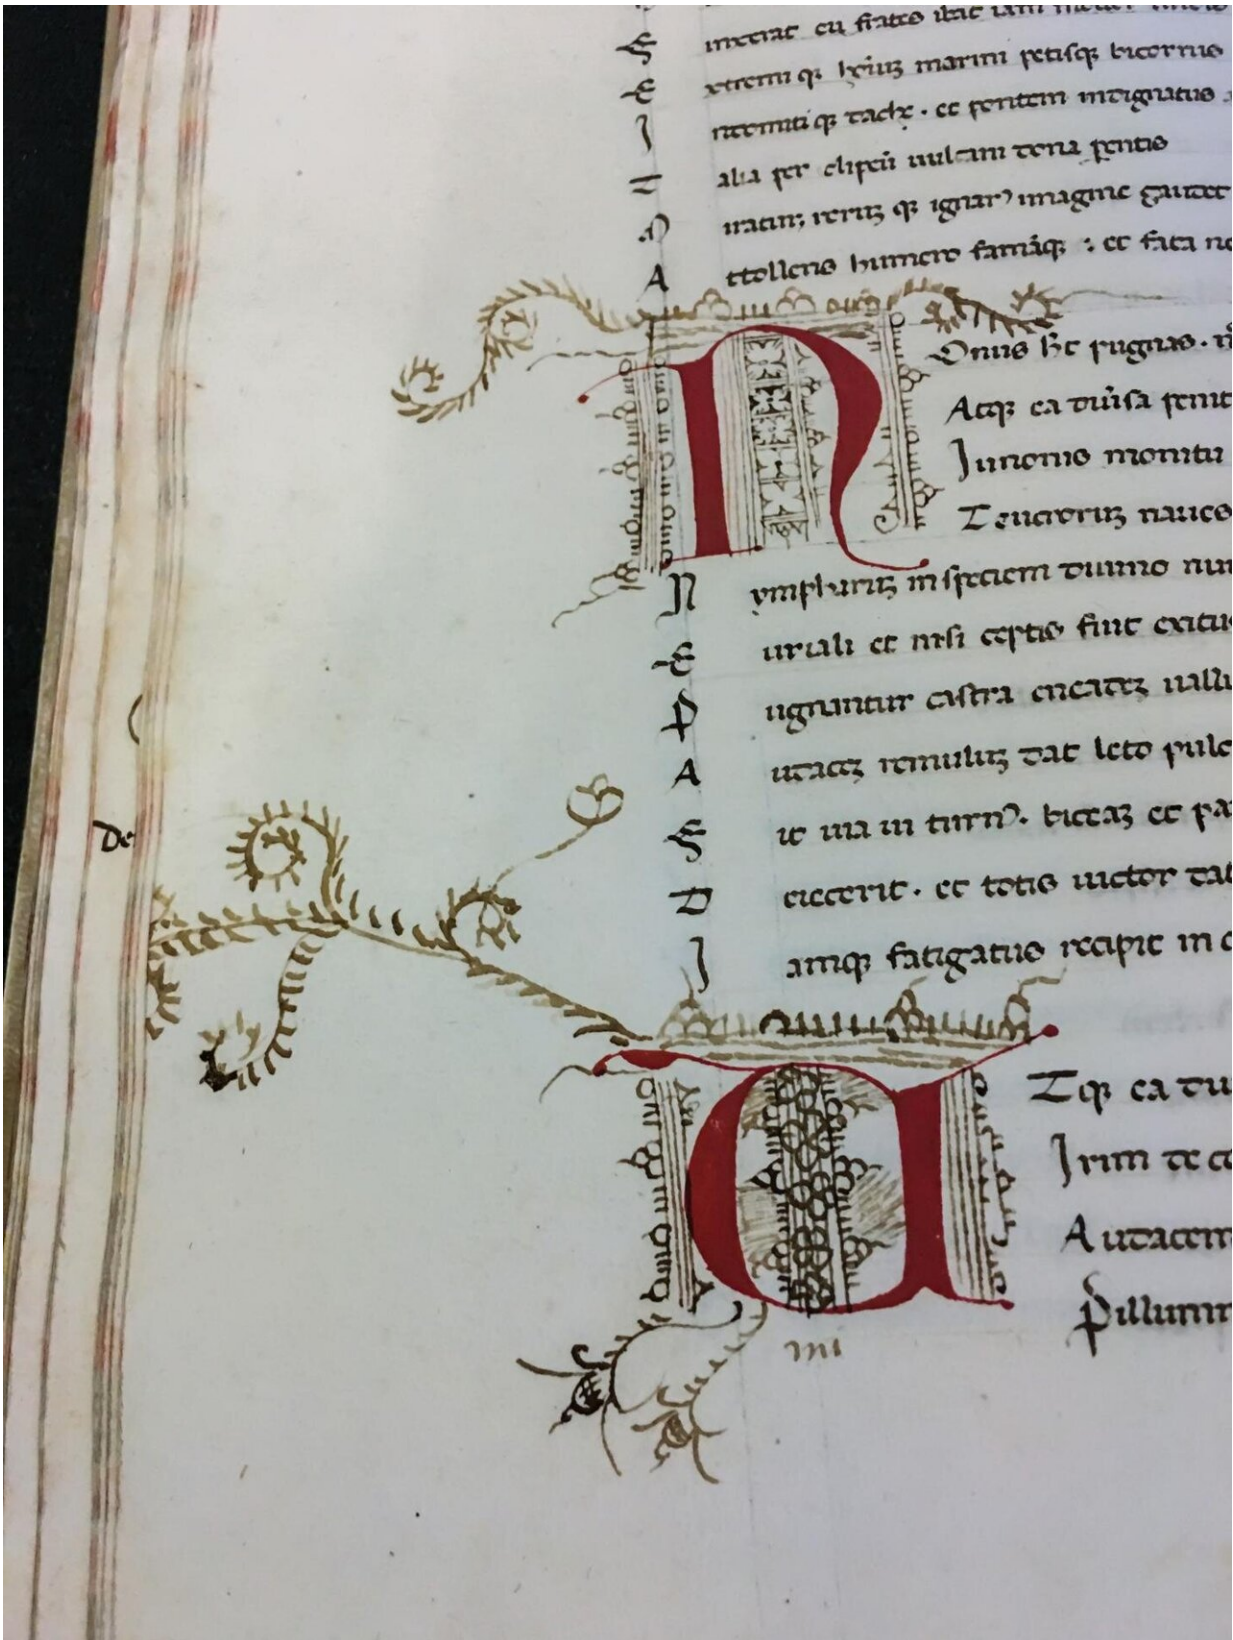 F inxerat eu frates ibat iam
E xtremi qꝫ hoīuꝫ morini renisqꝫ bicornus
I ndomiti qꝫ dache · et pontem indignatus
T alia per clipeū uulcani dona pentis
M iratur, reruꝫ qꝫ ignarꝰ imagine gaudet
A ttollens humero famāqꝫ : et fata ne
N Onus hēt pugnas · n
Atqꝫ ea diuisa penit
Iunonis monitu
Teucroruꝫ naues
N ympharuꝫ in speciem diuino nu
E uriali et nisi ceptis fuit exitu
P ugnantur castra
A udaceꝫ remuluꝫ dat leto pulc
F it uia ui turnꝰ · biteaꝫ et pa
D eiecerit · et totis uictor dat
I amqꝫ fatigatus recipit in c
de
A Tqꝫ ea du
Irim de ce
Audacem
Pillumn